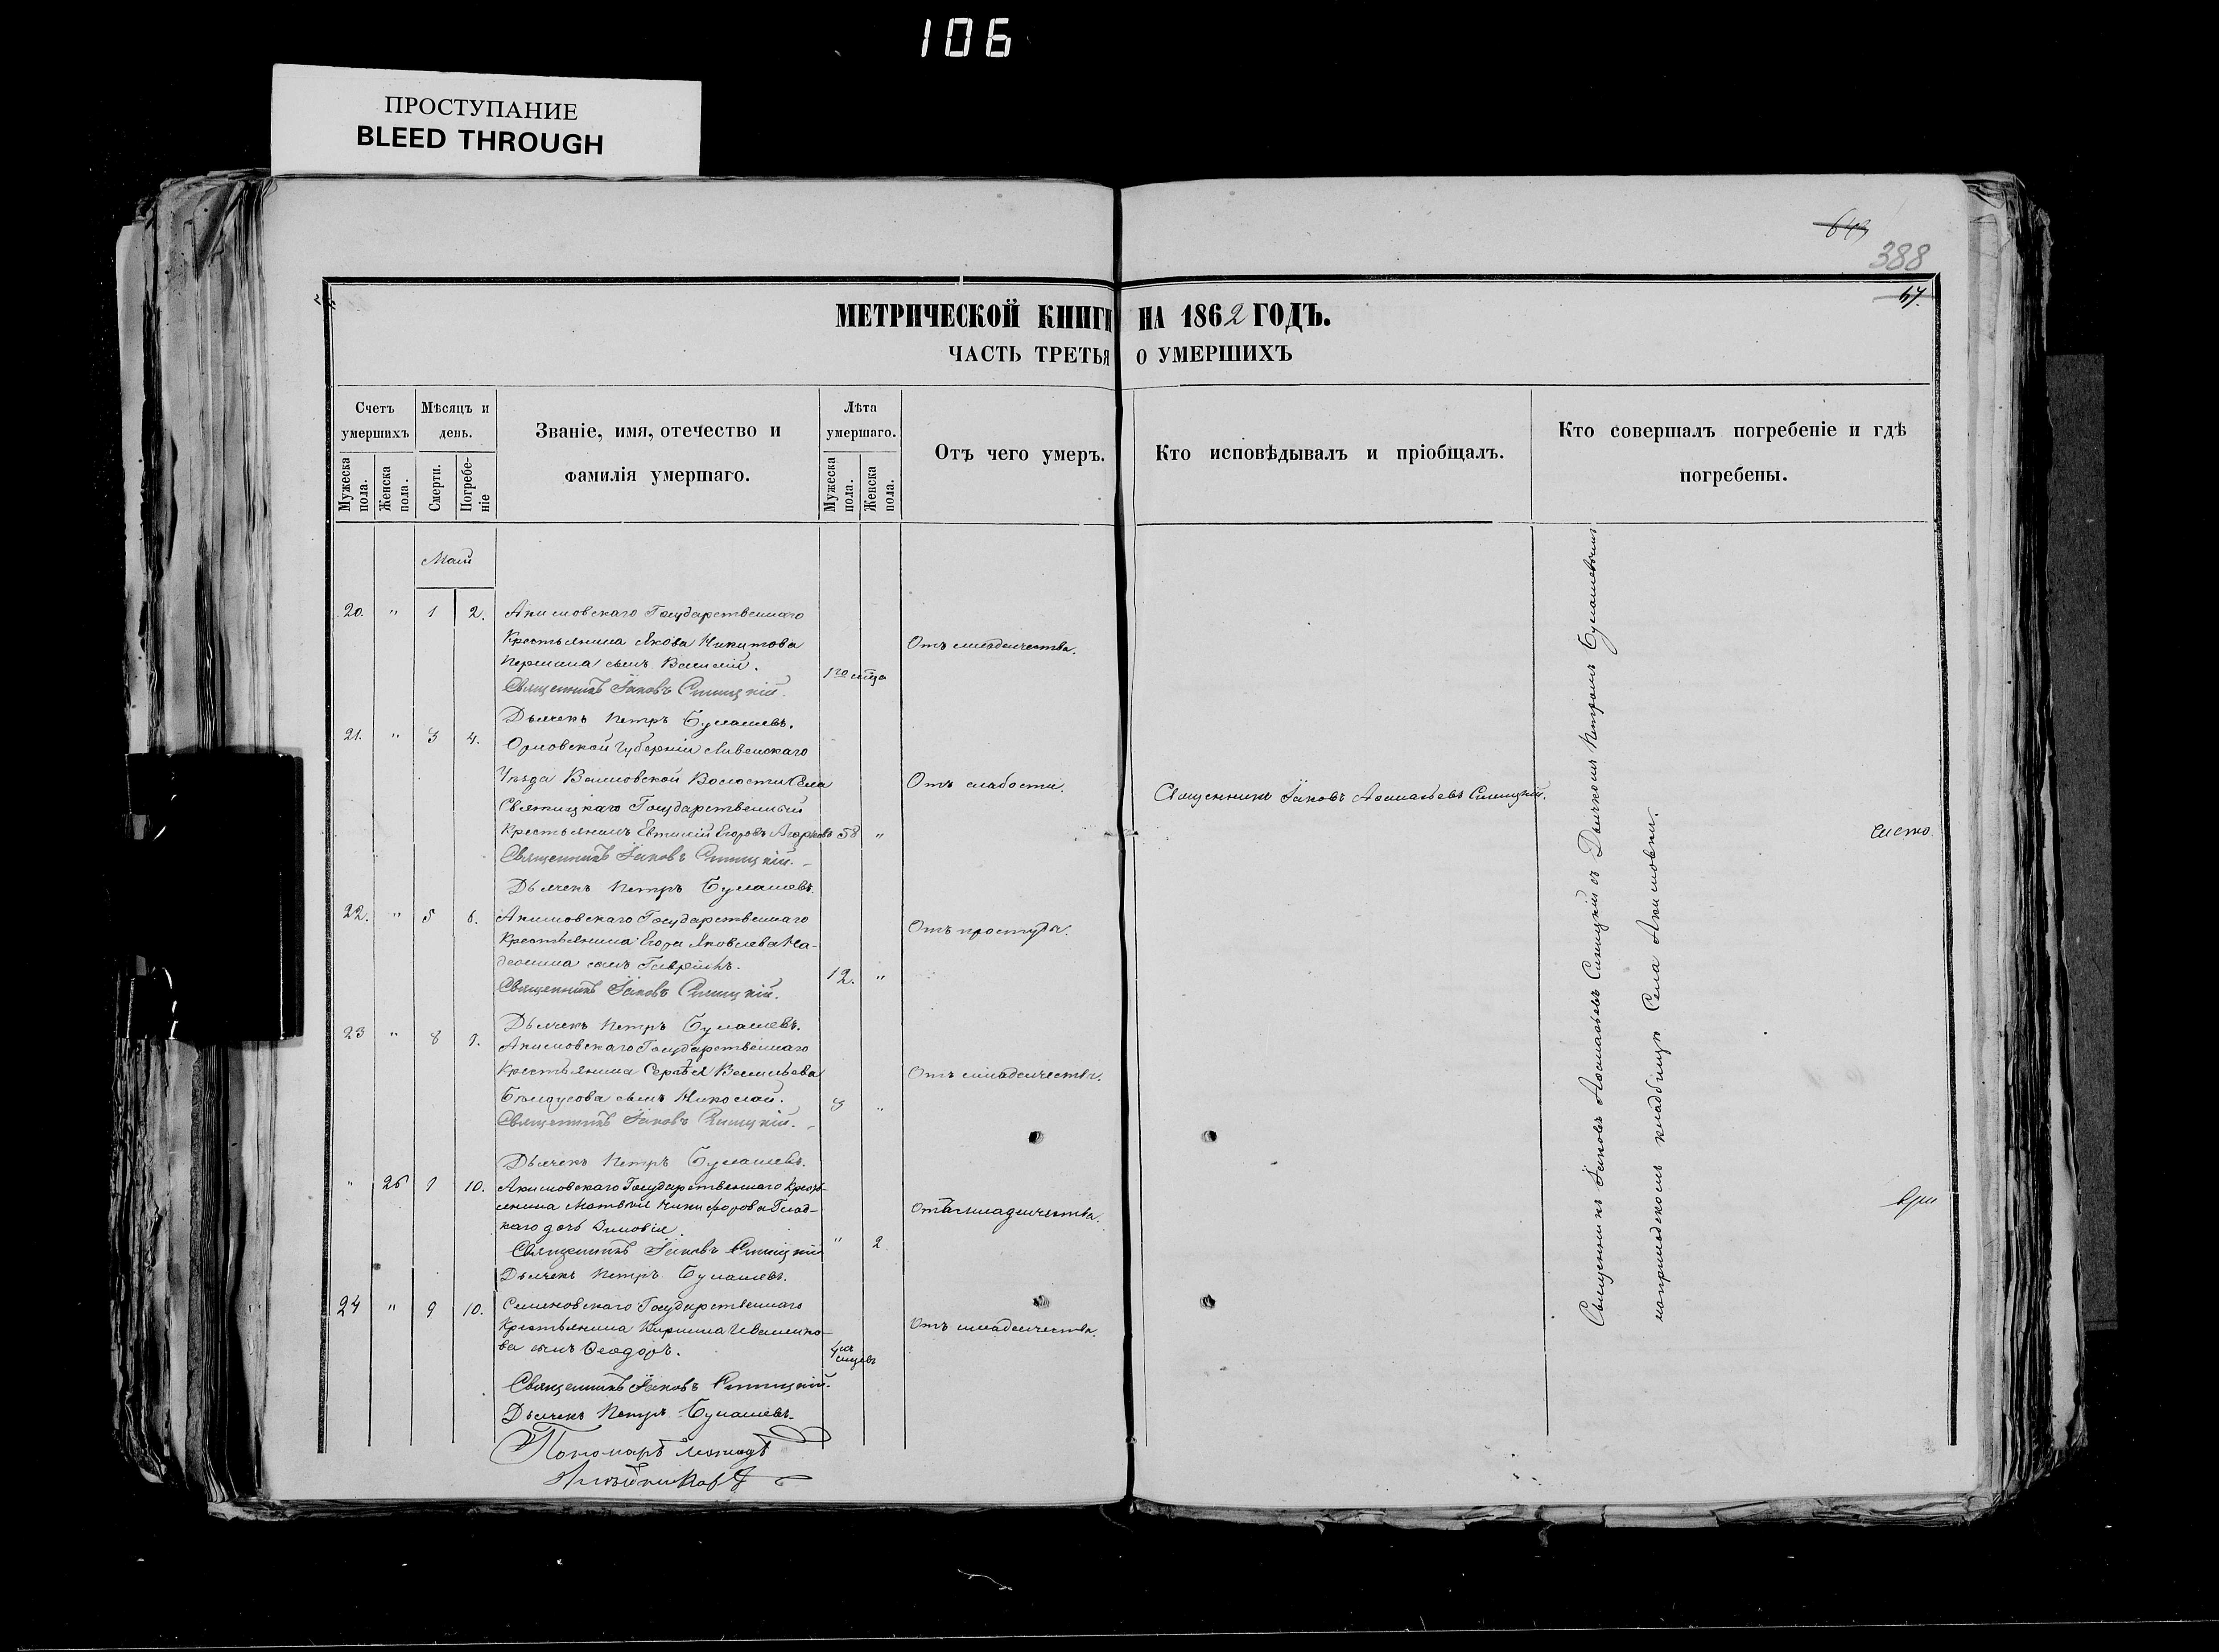 106
ПРОСТУПАНИЕ
BLEED THROUGH
388
МЕТРИЧЕСКОЙ КНИГИ НА 1862 ГОДЪ.
ЧАСТЬ ТРЕТЬЯ О УМЕРШИХЪ
Счетъ умершихъ
Мужеска пола.
Женска пола.
Мѣсяцъ и день.
Смерти.
Погребеніе
Званіе, имя, отечество и
фамилія умершаго.
Лѣта умершаго.
Мужеска пола.
Женска пола.
Отъ чего умеръ.
Кто исповѣдывалъ и пріобщалъ.
Кто совершалъ погребеніе и гдѣ
погребены.
Маій
20. " 1 2. Акимовскаго Государственнаго
Крестьянина Якова Никитова Отъ младенчества.
сынъ Василій. 1го мѣца
Священникъ Іаковъ Синицкій.
Дьячекъ Петръ Булашевъ.
21. " 3 4. Орловской Губерніи Ливенскаго
Уѣзда Волости Села Отъ слабости. Священникъ Іаковъ Синицкій.
Государственный
Крестьянинъ Евтихій Егоровъ 58 "
Священникъ Іаковъ Синицкій.
Дьячекъ Петръ Булашевъ.
22. " 5 6. Акимовскаго Государственнаго
Крестьянина Егора Яковлева Отъ простуды.
сынъ Гавріилъ. 12. "
Священникъ Іаковъ Синицкій.
Дьячекъ Петръ Булашевъ.
23 " 8 9. Акимовскаго Государственнаго
Крестьянина Сергѣя Васильева Отъ младенчества.
сынъ Николай. 3 "
Священникъ Іаковъ Синицкій.
Дьячекъ Петръ Булашевъ.
" 25 9 10. Акимовскаго Государственнаго Кресть-
янина Никифорова Глад-
каго дочь Зиновія. Отъ младенчества.
Священникъ Іаковъ Синицкій " 2
Дьячекъ Петръ Булашевъ.
24 " 9 10. Семеновскаго Государственнаго
Крестьянина Кирилла Иваненко- Отъ младенчества.
ва сынъ Ѳеодоръ. 4хъ мѣцевъ
Священникъ Іаковъ Синицкій.
Дьячекъ Петръ Булашевъ.
Пономарь
Священникъ Іаковъ Синицкій съ Дьячкомъ Петромъ Булашевымъ
на приходскомъ кладбищѣ Села Акимовки.